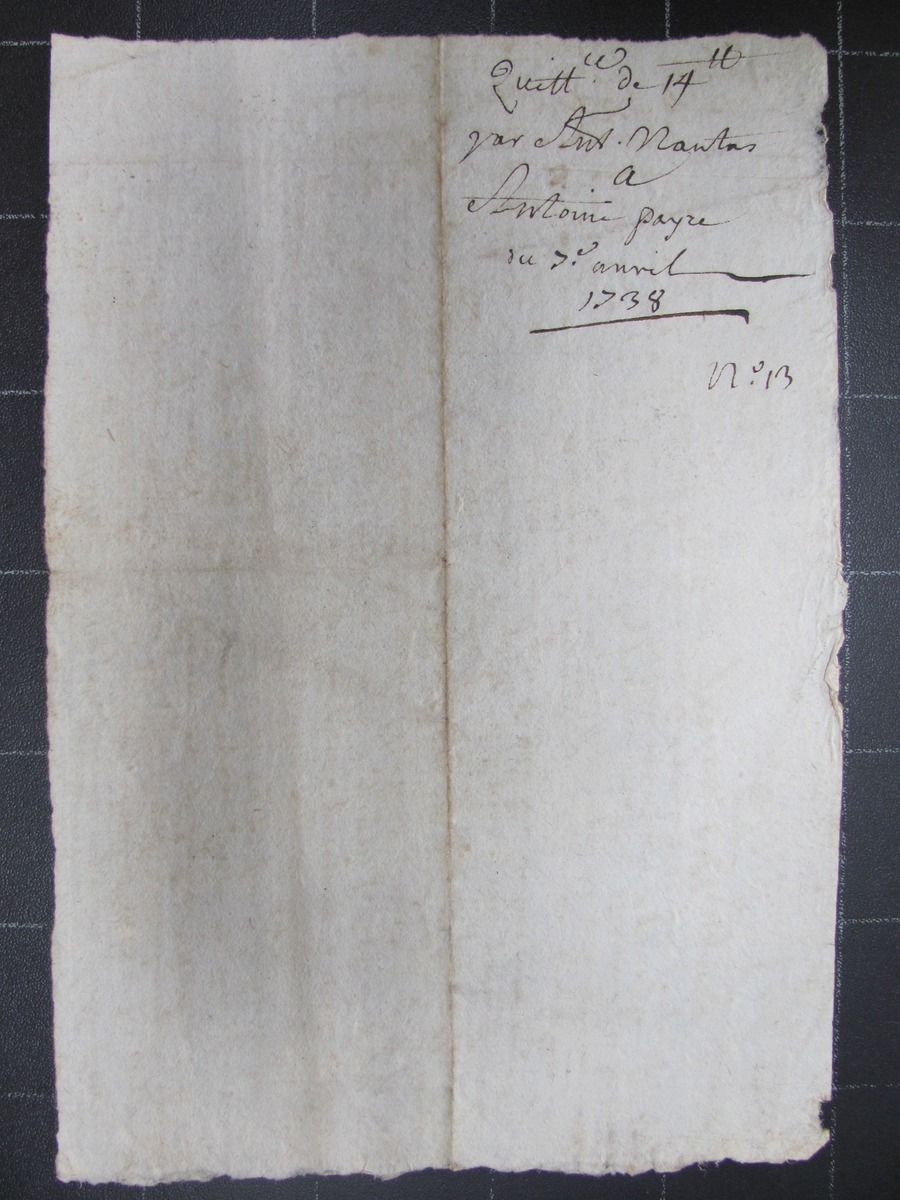 Quitt.ce de 14 tt
par Ant. Nautas
a
Antoine payre
du 7.e avril
1738
N.o 13